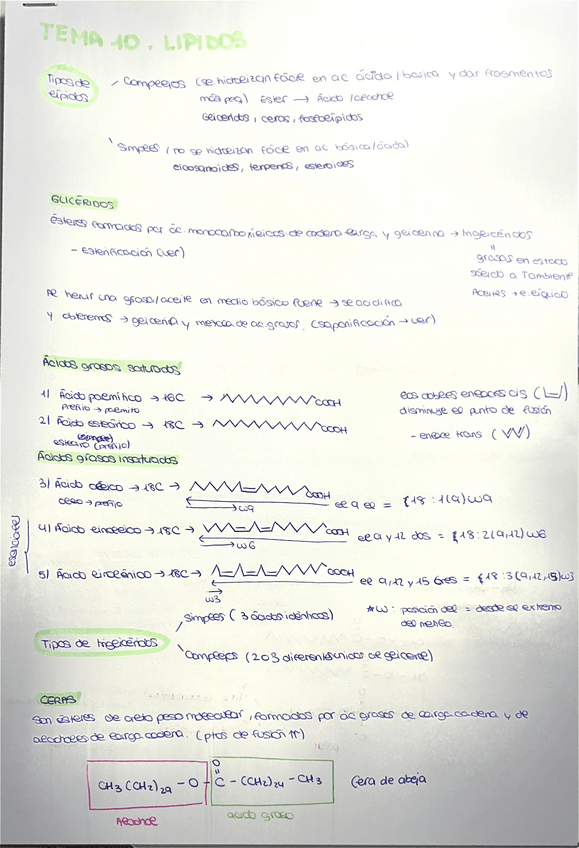 TEMA 10. LIPIDOS
Tipos de lípidos
Complejos (se hidrolizan fácil en ac ácida / básica y dar fragmentos
más peq) Ester → Ácido / alcohol
Glicéridos, ceras, fosfolípidos
Simples (no se hidrolizan fácil en ac básica/ácida)
eicosanoides, terpenos, esteroides
GLICÉRIDOS
Ésteres formados por ác. monocarboxílicos de cadena larga y glicerina → triglicéridos
- Esterificación (ver)
"
grasas en estado
sólido a Tambiente
Aceites → e. líquido
Al hervir una grasa/aceite en medio básico fuerte → se acidifica
y obtenemos → glicerina y mezcla de ac. grasos. (saponificación → ver)
Ácidos grasos saturados
1) Ácido palmítico → 16C → COOH
Prefijo → palmito
2) Ácido esteárico → 18C → COOH
estearo (prefijo)
los dobles enlaces cis
disminuye el punto de fusión
- enlace trans
Ácidos grasos insaturados
3) Ácido oleico → 18C → COOH
oleo → prefijo
ω9
el 9 el = {18:1(9) ω9
esenciales
4) Ácido linoleico → 18C → COOH
ω6
el 9 y 12 dos = {18:2(9,12) ω6
5) Ácido linolénico → 18C → COOH
ω3
el 9,12 y 15 tres = {18:3(9,12,15) ω3
*ω: posición del = desde el extremo
del metilo.
Tipos de trigliceridos
Simples (3 ácidos idénticos)
Complejos (2 o 3 diferentes unidos al glicerol)
CERAS
Son ésteres de alto peso molecular, formados por ác grasos de larga cadena y de
alcoholes de larga cadena. (ptos de fusión ↑↑)
O
"
CH3 (CH2)29 - O - C - (CH2)24 - CH3 Cera de abeja
Alcohol
ácido graso